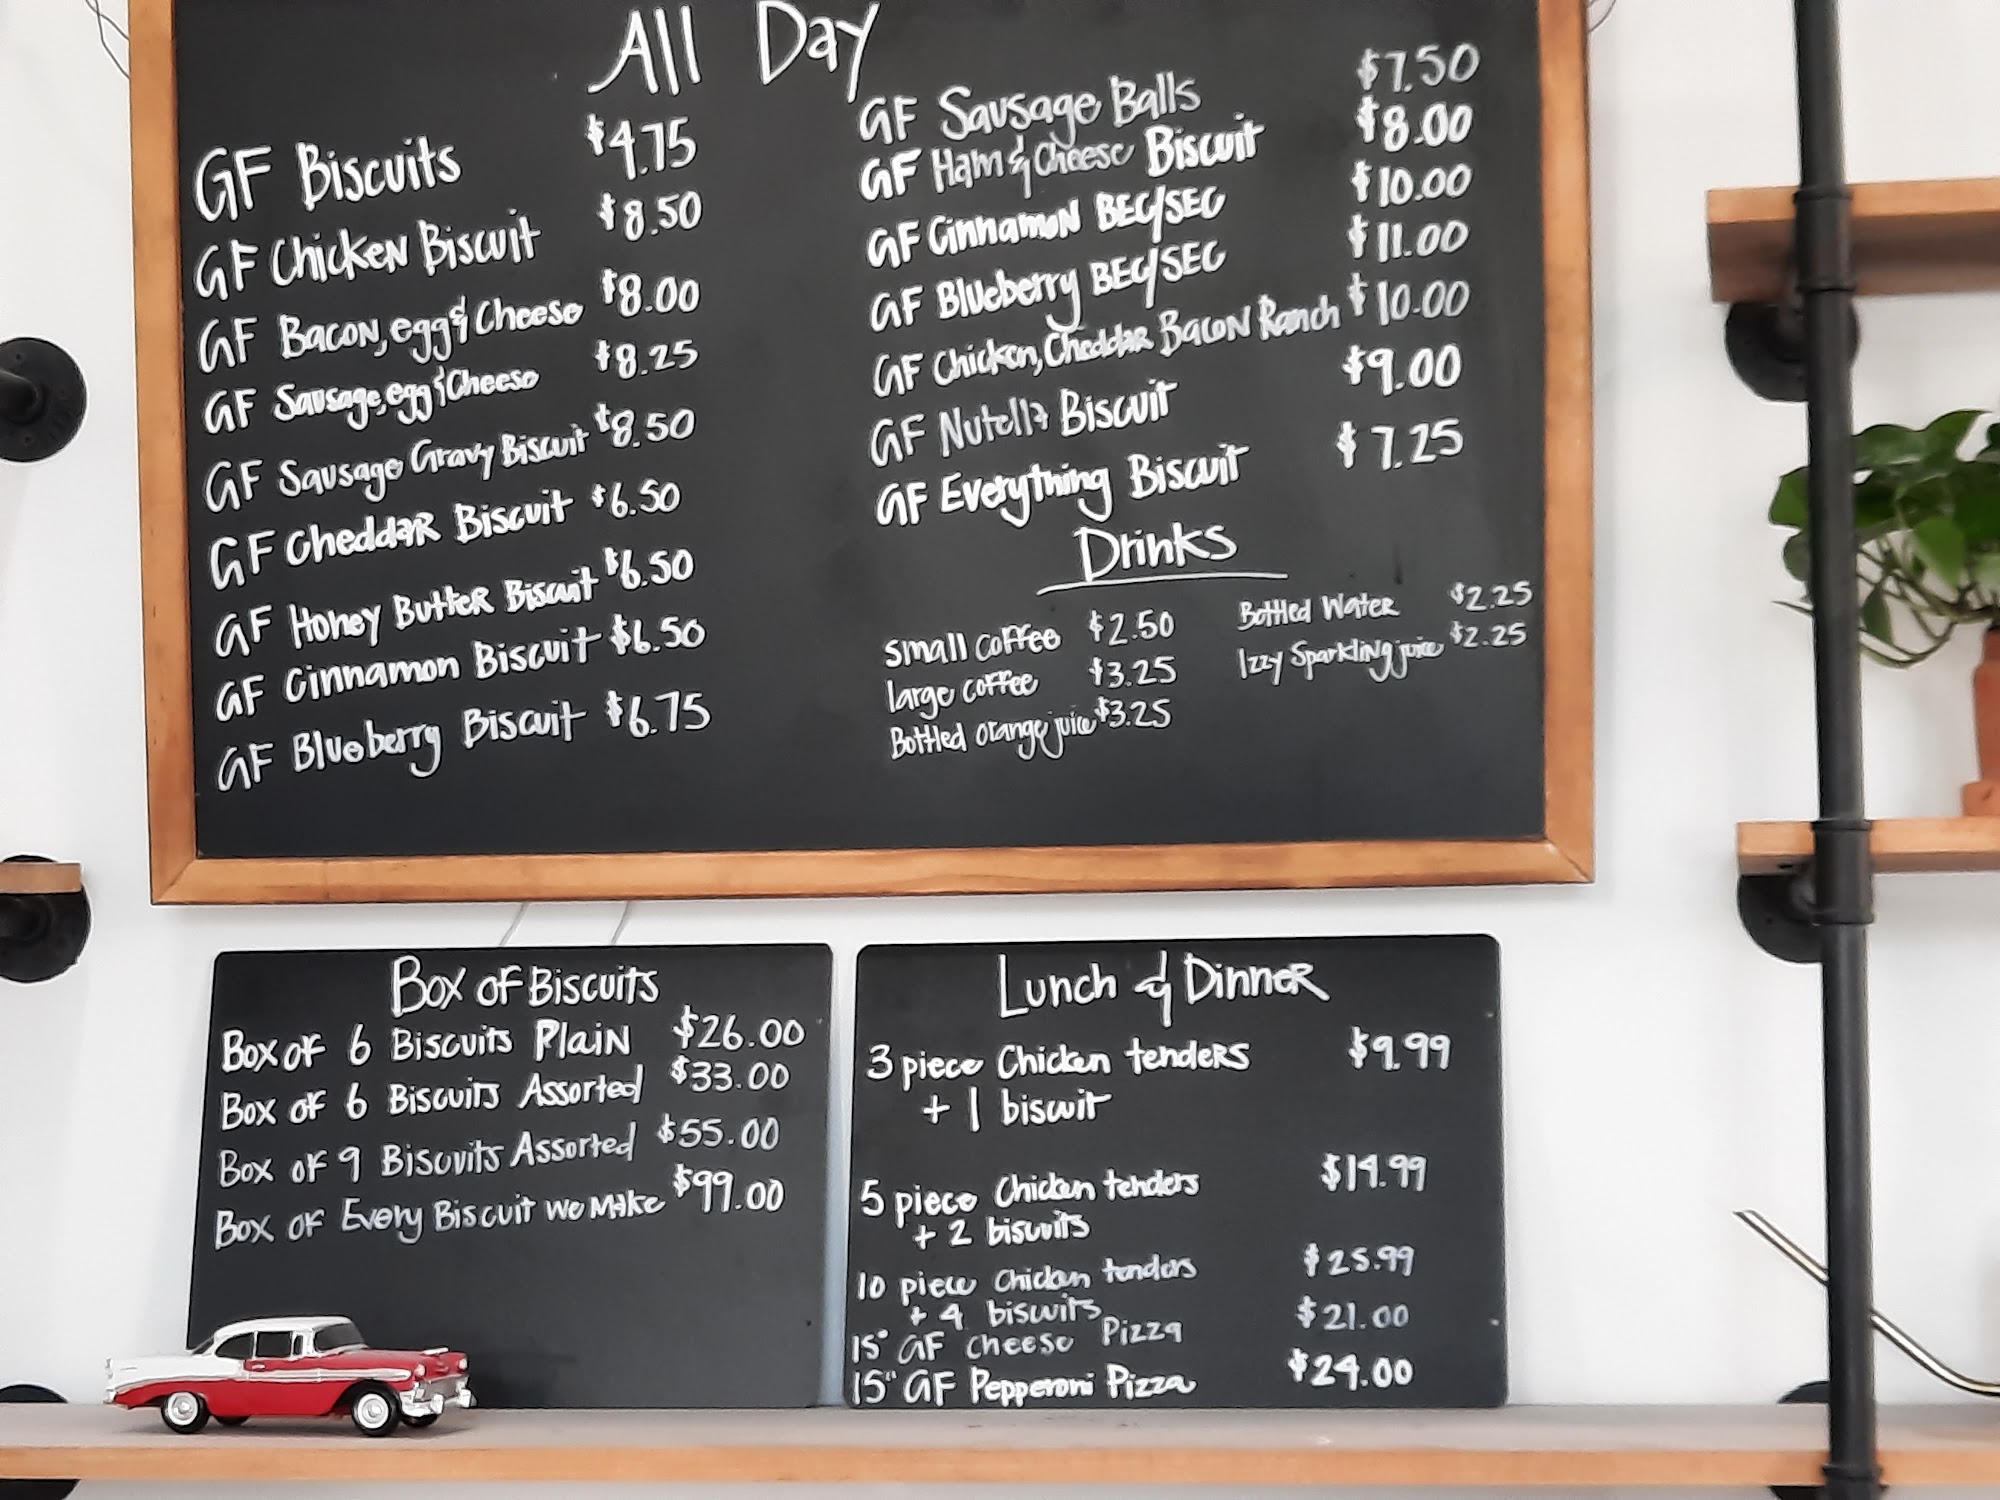 All Day
GF Biscuits $4.75
GF Chicken Biscuit $8.50
GF Bacon, egg & Cheese $8.00
GF Sausage, egg & Cheese $8.25
GF Sausage Gravy Biscuit $8.50
GF Cheddar Biscuit $6.50
GF Honey Butter Biscuit $6.50
GF Cinnamon Biscuit $6.50
GF Blueberry Biscuit $6.75
GF Sausage Balls $7.50
GF Ham & Cheese Biscuit $8.00
GF Cinnamon BEC/SEC $10.00
GF Blueberry BEC/SEC $11.00
GF Chicken, Cheddar Bacon Ranch $10.00
GF Nutella Biscuit $9.00
GF Everything Biscuit $7.25
Drinks
small coffee $2.50
large coffee $3.25
Bottled orange juice $3.25
Bottled Water $2.25
Izzy Sparkling juice $2.25
Box of Biscuits
Box of 6 Biscuits Plain $26.00
Box of 6 Biscuits Assorted $33.00
Box of 9 Biscuits Assorted $55.00
Box of Every Biscuit we Make $99.00
Lunch & Dinner
3 piece Chicken tenders $9.99
+ 1 biscuit
5 piece Chicken tenders $14.99
+ 2 biscuits
10 piece Chicken tenders $25.99
+ 4 biscuits
15" GF Cheese Pizza $21.00
15" GF Pepperoni Pizza $24.00